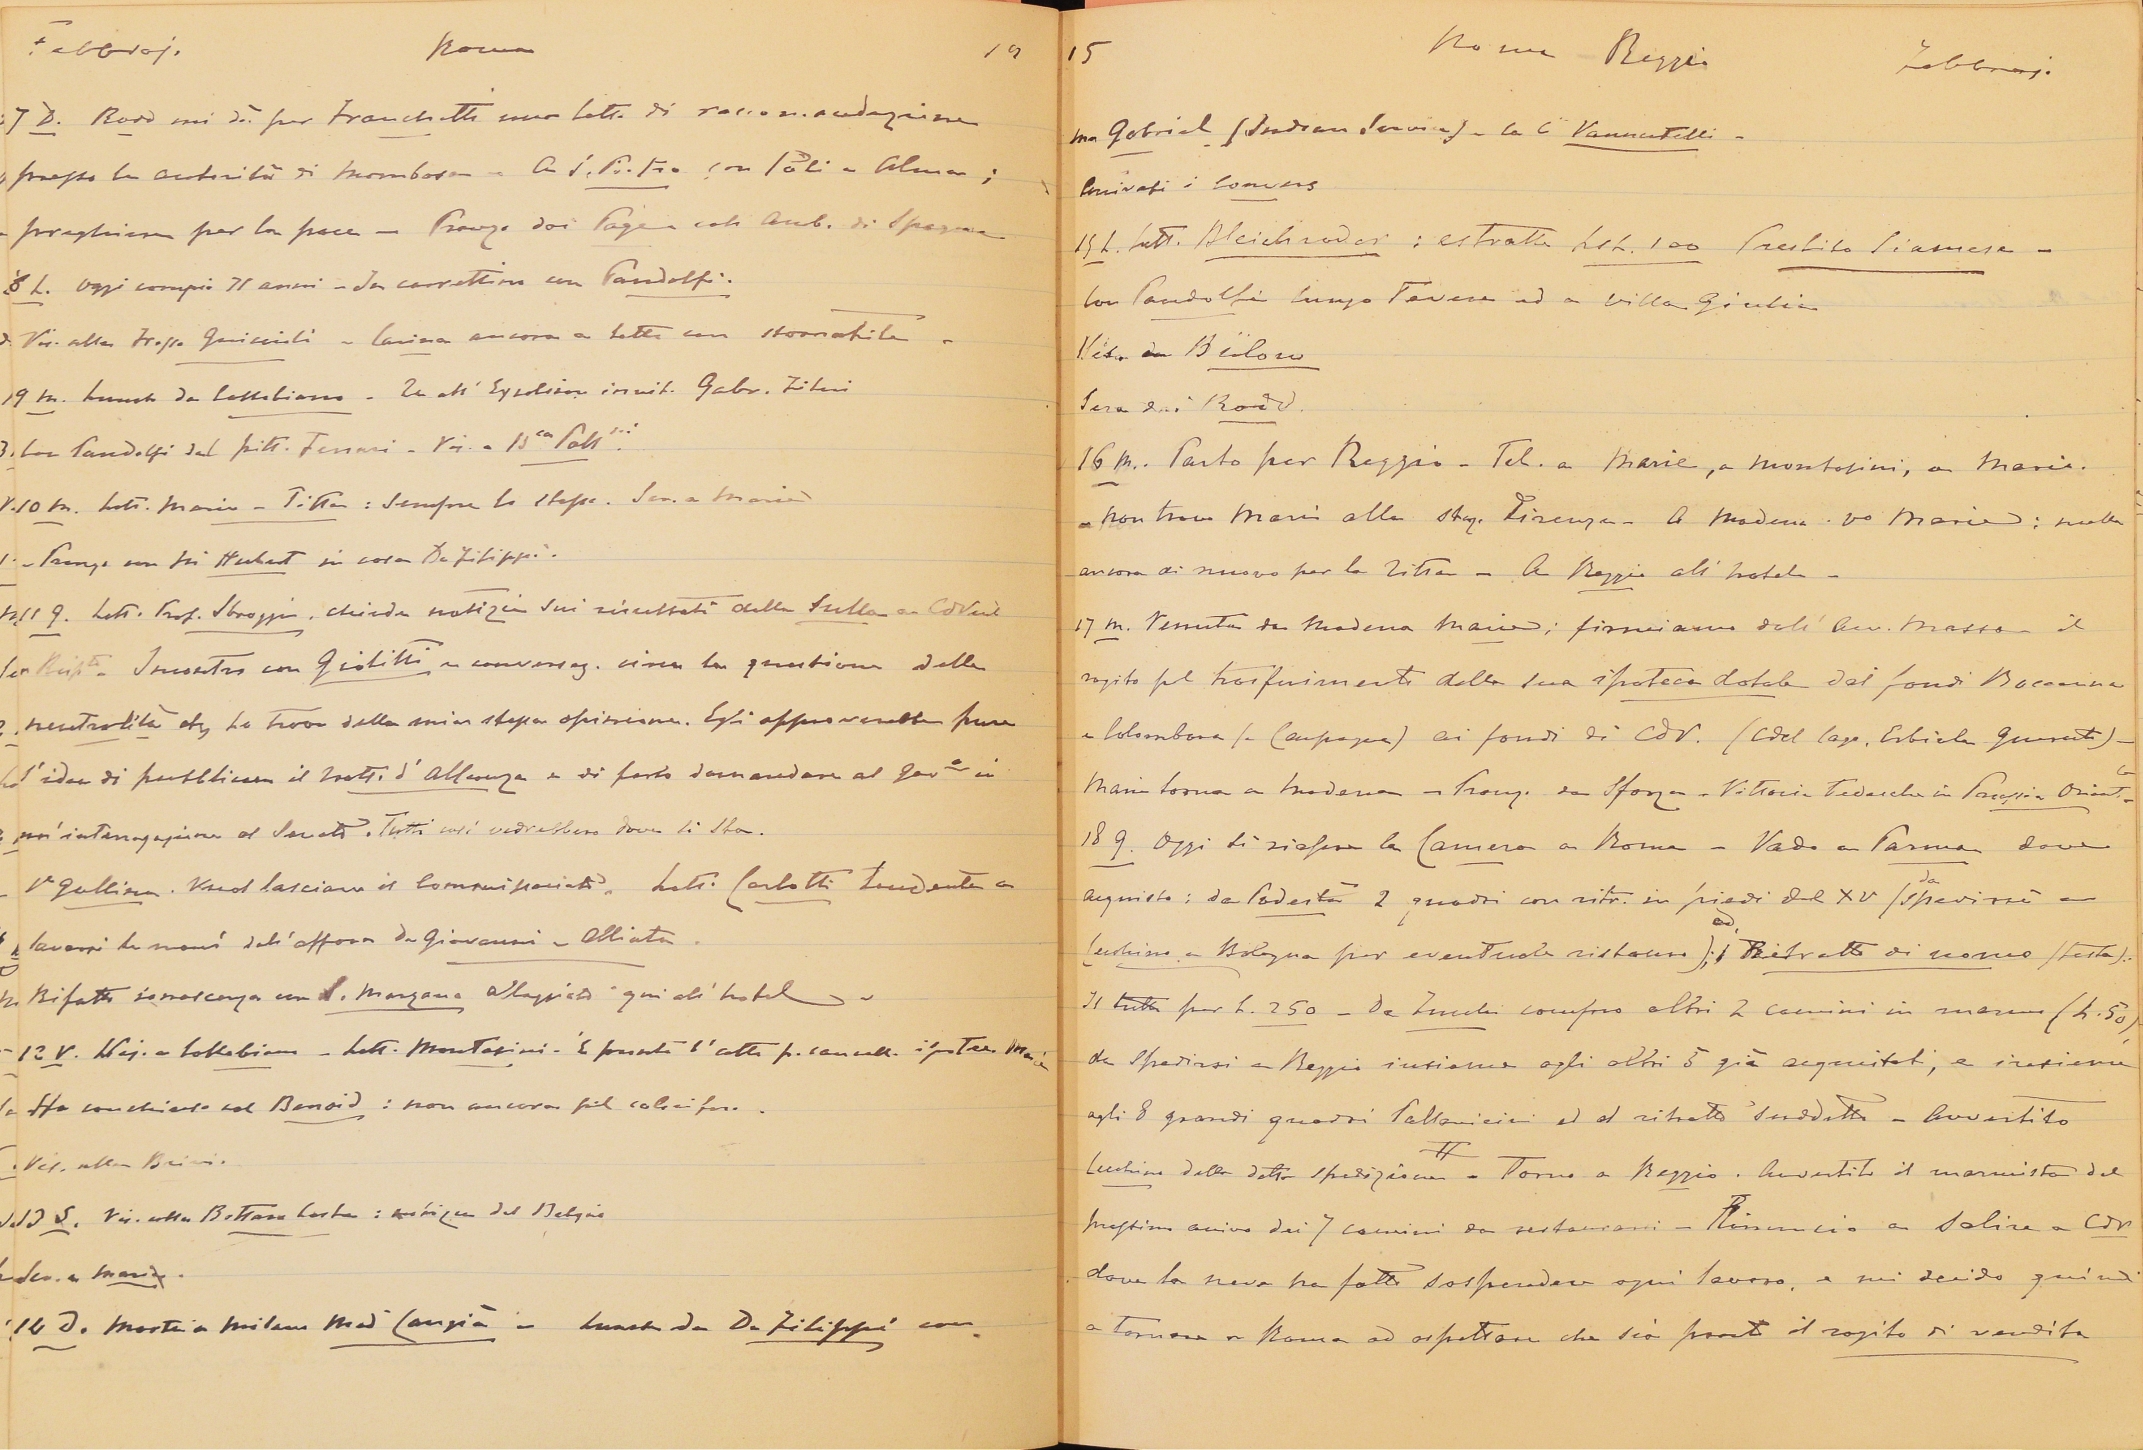 Febbraj. Roma 19
7 D. Rodd mi dà per Franchetti una lett. di raccomandazione
presso le autorità di Mombasa - A S. Pietro con Poli e Alma;
preghiera per la pace - Pranzo dai Page coll'Amb. di Spagna
8 L. Oggi compio 71 anni - In carrettino con Pandolfi.
Vis. alla Guiccioli - Carina ancora a letto con
9 M. Lunch da Cottolions - Gabr.
Con Pandolfi dal pitt. Ferrari - Vis. a
10 M. Lett. Maria - Titta: sempre lo stesso. Scr. a Maria
- Pranzo con Sir Hubert in casa De Filippi.
11 G. Lett. Prof. Stroggio, chiede notizie sui risultati della Sulla a CdV
Incontro con Giolitti e conversaz. circa la questione della
neutralità etc. Lo trovo della mia stessa opinione. Egli approverebbe pure
l'idea di pubblicare il tratt. d'Alleanza e di farlo domandare al Gov.º in
un'interrogazione al Senato. Tutti così vedrebbero dove si sta.
Va Gallina. Vuol lasciare il Commissariato. Lett. Carlotti tendente a
lavarsi le mani dell'affare De Giovanni - Alliata.
Rifatto conoscenza con S. Marzano alloggiato qui all'hotel
12 V. Vis. a - Lett. Montasini. È pronto l'atto p. cancell. ipoteca Maria
Ha conchiuso col Benoid: non ancora pel
Vis. alla
13 S. Vis. alla Bottaro Costa: notizie del Belgio
Scr. a Maria.
14 D. Morta a Milano Mad. Cangià - Lunch da De Filippi con
15 Roma Reggio Febbraj.
Ma Gabriel (Indian Service) - la Cª Vannutelli -
Arrivati i
15 L. Lett. Bleichroder: estratte Lst. 100 Prestito Siamese -
Con Pandolfi lungo Tevere ed a Villa Giulia
Vis. da Bülow
Sera dai Rodd.
16 M. Parto per Reggio - Tel. a Marie, a Montasini, a Maria.
- Non trovo Maria alla staz. Firenze - A Modena vo Maria: nulla
ancora di nuovo per la Titta - A Reggio all'hotel -
17 M. Venuta da Modena Maria; firmiamo dall'Avv. Massa il
rogito pel trasferimento della sua ipoteca dotale dai fondi
e Colombara (a Campagna) ai fondi di CdV. (Cdel Lago, Erbiala Querceto) -
Maria torna a Modena - Pranz. da Sforza - Vittoria Tedesche in Prussia Orient.le -
18 G. Oggi si riapre la Camera a Roma - Vado a Parma dove
acquisto: da Podestà 2 quadri con ritr. in piedi del XV (da spedirsi a
Leoni a Bologna per eventuale ristauro); ed 1 Ritratto di uomo (testa).
Il tutto per L. 250 - Da compro altri 2 camini in marmo (L. 50)
da spedirsi a Reggio insieme agli altri 5 già acquistati, e insieme
agli 8 grandi quadri Pallavicini ed al ritratto suddetto - Avvertito
della detta spedizione - Torno a Reggio. Avvertito il marmista del
prossimo arrivo dei 7 camini da restaurarsi - Rinuncio a salire a CdV
dove la neve ha fatto sospendere ogni lavoro, e mi decido quindi
a tornare a Roma ad aspettare che sia pronto il rogito di vendita